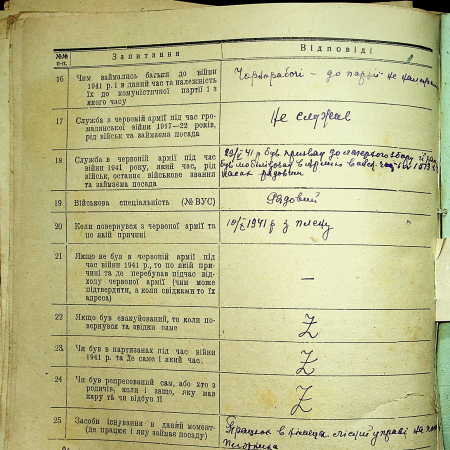 №№ п-п.
Запитання
Відповіді
16
Чим займались батьки до війни
1941 р. і в даний час та належність
їх до комуністичної партії і з
якого часу
Чорнорабочі — до партії не належали
17
Служба в червоній армії під час гро-
малянської війни 1917—22 років,
рід військ та займаєма посада
Не служив
18
Служба в червоній армії під час
війни 1941 року, який час, рід
військ, останнє військове звання
та займаєма посада
41 р був призван до
був мобілізован в Армію
рядовий
19
Військова спеціальність (№ ВУС)
Рядовий
20
Коли повернувся з червоної армії та
по якій причині
1941 р з плену
21
Якщо не був в червоній армії під
час війни 1941 р., то по якій при-
чині та де перебував підчас від-
ходу червоної армії (чим може
підтвердити, а коли свідками то їх
адреса)
—
22
Якщо був евакуйований, то коли по-
вернувся та звідки саме
Z
23
Чи був в партизанах під час війни
1941 р. та Де саме і який час
Z
24
Чи був репресований сам, або хто з
родичів, коли і защо, яку мав
кару та чи відбув її
Z
25
Засоби існування в даний момент-
(де працює і яну займає посаду)
Працюю в управі на